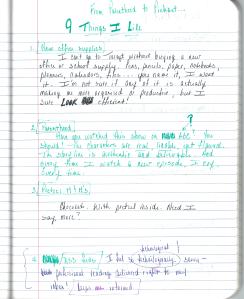 From Parenthood to Pinterest...
9 Things I Like
1. New office supplies!
I can't go to Target without buying a new
office or school supply. Pens, pencils, paper, notebooks,
planners, calendars, files... you name it, I want
it. I'm not sure if any of it is actually
making me more organized or productive, but I
sure LOOK efficient!
2. Parenthood.
?
Have you watched this show on ABC? You
should! The characters are real, likable, yet flawed.
The storyline is authentic and believable. And
every time I watch a new episode, I cry.
Every time.
3. Pretzel M&Ms.
Chocolate. With pretzel inside. Need I
say more?
4.
I feel so technological!
personal readings delivered right to my
inbox!